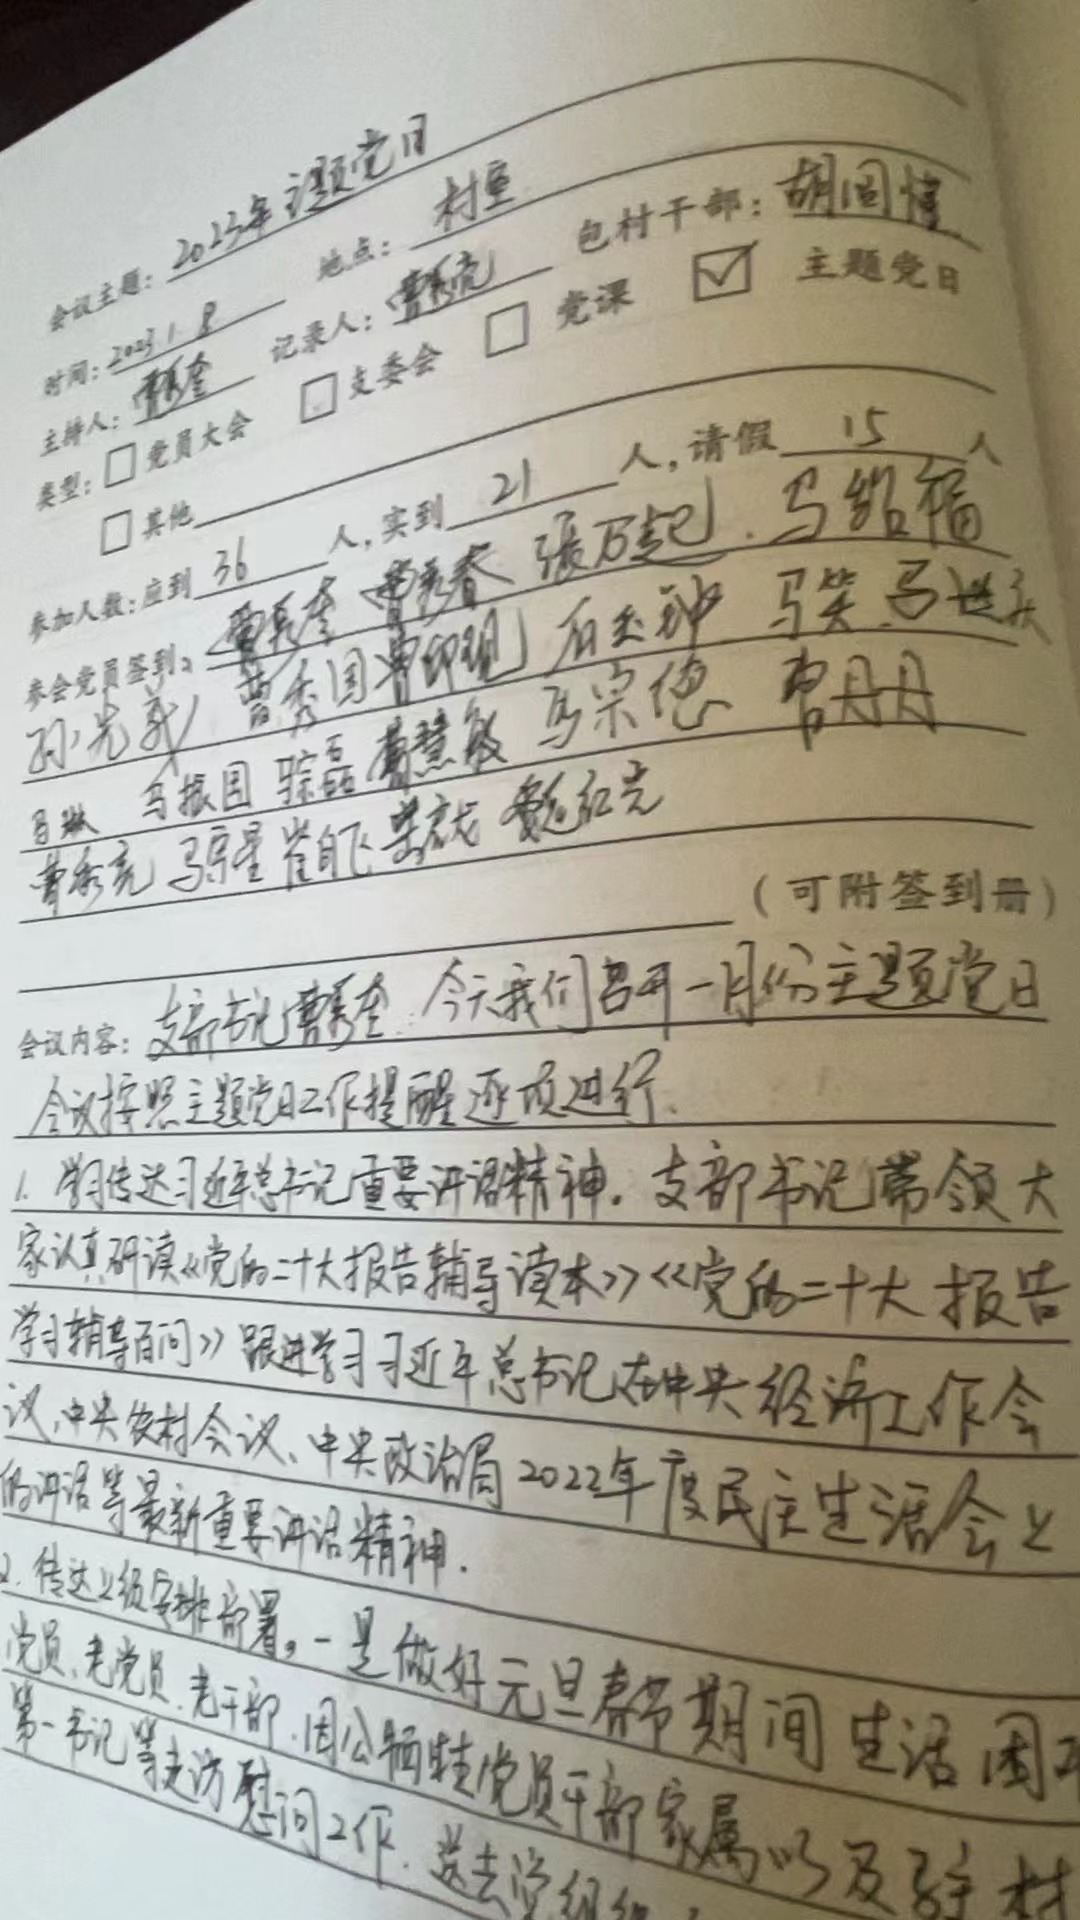 会议主题：2023年主题党日
时间：2023.1.8 地点：村室
主持人：曹秀奎 记录人：曹秀亮 包村干部：胡国
类型：□党员大会 □支委会 □党课 ☑主题党日
□其他
参加人数：应到 36 人，实到 21 人，请假 15 人
参会党员签到：曹秀奎 曹秀春 张万起 马绍福
孙光 曹秀国 曹印现 马笑 马世
马琳 马振国 磊 曹慧敏 马宗德 曹丹丹
曹秀亮 马宗星 崔 红亮
（可附签到册）
会议内容：支部书记曹秀奎：今天我们召开一月份主题党日
会议按照主题党日工作提醒逐项进行.
1. 学习传达习近平总书记重要讲话精神。支部书记带领大
家认真研读《党的二十大报告辅导读本》《党的二十大报告
学习辅导百问》跟进学习习近平总书记在中央经济工作会
议、中央农村会议、中央政治局2022年度民主生活会上
的讲话等最新重要讲话精神.
2. 传达上级安排部署。一是做好元旦春节期间生活困
党员、老党员、老干部、因公牺牲党员干部家属以及驻村
第一书记等走访慰问工作. 送去党组织